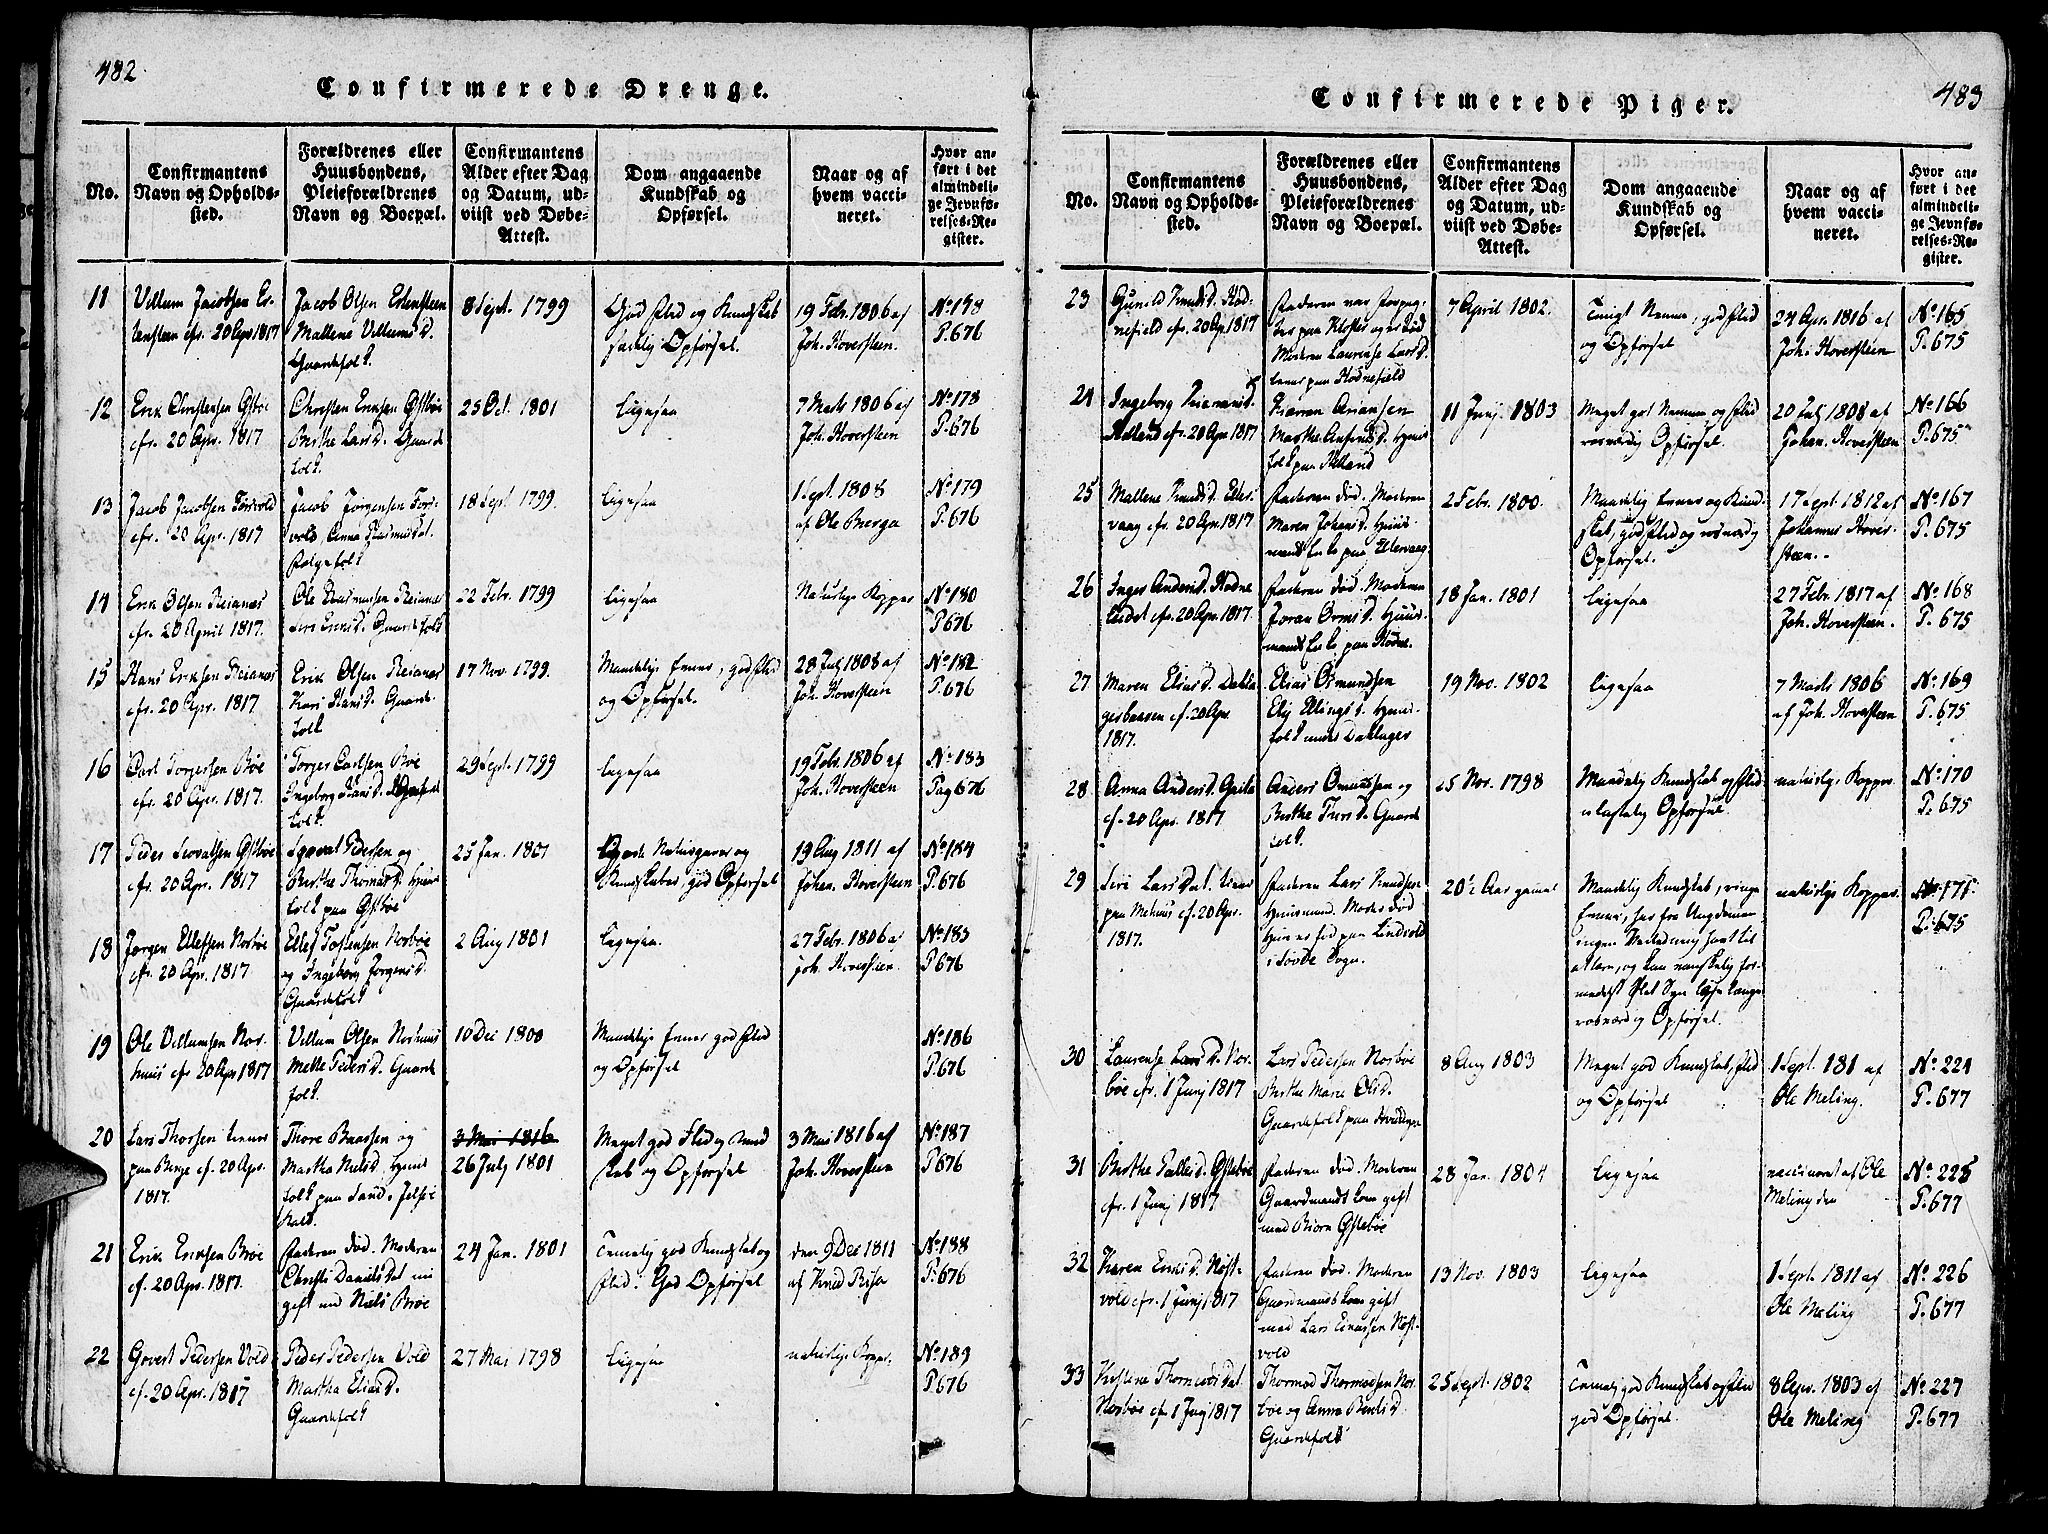 482.
Confirmerede Drenge.
No.
Confirmantens
Navn og Opholds-
sted.
Forældrenes eller
Huusbondens,
Pleieforældrenes
Navn og Boepæl.
Confirmantens
Alder efter Dag
og Datum, ud-
viist ved Døbe-
Attest.
Dom angaaende
Kundskab og
Opførsel.
Naar og af
hvem vacci-
neret.
Hvor an-
ført i det
almindeli-
ge Jevnfø-
relses-Re-
gister.
11
Villum Jacobsen
cfr. 20 Apr 1817
Jacob Olsen
Mallene Villumsd.
Gaardefolk.
8 Sept. 1799
God Flid og Kundskab
sædelig Opførsel.
19 Febr. 1806 af
Joh. Hoversteen.
No 178
P. 676
12
Erik Christensen Østbøe
cfr. 20 Apr. 1817
Christen Eriksen Østbøe
Birthe Larsd. Gaarde
folk.
25 Oct. 1801
Ligesaa
7 Marts 1806 af
Joh. Hoversteen
No 178
P. 676
13
Jacob Jacobsen
cfr. 20 Apr. 1817
Jacob Jørgensen
Anna Rasmusdat.
18 Sept. 1799
Ligesaa
1 Sept. 1808
af Ole Berge
No 179
P. 676
14
Erik Olsen Reianes
cfr. 20 April 1817.
Ole Rasmussen Reianes
Gaardefolk
22 Febr. 1799
Ligesaa
Naturlige Kopper
No 180
P 676
15
Hans Eriksen Reianes
cfr. 20 Apr. 1817.
Erik Olsen Reianes
Kari Hansd. Gaarde
folk
17 Nov. 1799.
Maadelige Evner, god Flid
og Opførsel.
28 July 1808 af
Joh. Hoversteen
No 182
P. 676
16
Carl Torgersen Bøe
cfr. 20 Apr. 1817.
Torger Carlsen Bøe
Ingeborg Hansd.
folk.
29 Sept. 1799
Ligesaa
19 Febr. 1806 af
Joh. Hoversteen.
No 183
Pag 676
17
Peder Østbøe
cfr. 20 Apr. 1817
Pedersen og
Birthe Thomasd. Huus
folk paa Østbøe
25 Jan. 1801
Gode Naturgaver og
Kundskaber, god Opførsel
19 Aug 1811 af
Johan. Hoversteen
No 184
P. 676
18
Jørgen Ellefsen Norbøe
cfr. 20 Apr. 1817.
Ellef Tostensen Norbøe
og Ingeborg Jørgensd.
Gaardefolk
2 Aug 1801
Ligesaa.
27 Febr. 1806 af
Joh. Hoversteen.
No 185
P 676
19
Ole Villumsen Nor-
huus cfr 20 Apr 1817
Villum Olsen Norhuus
Mette Pedersd. Gaarde
folk.
10 Dec 1800
Maadelige Evner god Flid
og Opførsel
No 186
P. 676
20
Lars Thorsen tiener
paa Berge cf. 20 Apr.
1817.
Thore Baarsen og
Martha Nielsd. Huus
folk paa Sand,
3 Mai 1816
26 July 1801
Meget god Flid og Kund
skab og Opførsel
3 Mai 1816 af
Joh. Hoversteen
No 187
P 676
21
Erik Eriksen Bøe
cf. 20 Apr. 1817.
Faderen død. Moderen
Christi Danielsdat nu
gift med Niels Bøe
24 Jan. 1801
Temelig god Kundskab og
Flid. God Opførsel
den 9 Dec 1811
af Knud Risa
No 188
P. 676
22
Govert Pedersen Vold
cf. 20 Apr. 1817
Peder Pedersen Vold
Martha Eliasd.
Gaardefolk
27 Mai 1798
Ligesaa
naturlige Kopper.
No 189
P. 676
483
Confirmerede Piger.
No.
Confirmantens
Navn og Opholds-
sted.
Forældrenes eller
Huusbondens,
Pleieforældrenes
Navn og Boepæl.
Confirmantens
Alder efter Dag
og Datum, ud-
viist ved Døbe-
Attest.
Dom angaaende
Kundskab og
Opførsel.
Naar og af
hvem vacci-
neret.
Hvor an-
ført i det
almindeli-
ge Jevnfø-
relses-Re-
gister.
23
Gunild Knudsd. Hod-
nefield cfr. 20 Apr. 1817
Faderen var Forpag-
ter paa Kloster og er død
Moderen Laurense Larsd.
lever paa Hodnefield
7 April 1802.
Temeligt Nemme, god Flid
og Opførsel
24 Apr. 1816 af
Joh. Hoversteen
No 165
P. 675
24
Ingeborg
cfr. 20 Apr 1817
Huus
folk paa
11 Junj 1803
Meget god Nemme og Flid
rosværdig Opførsel.
20 July 1808 af
Johan. Hoversteen
No 166
P. 675
25
Mallene Knudsd. Elter-
vaag cfr. 20 Apr. 1817
Faderen død. Moderen
Maren Johansd. Huus-
mandsenke paa Eltervaag
2 Febr. 1800.
Maadelig Evner og Kund-
skab, god Flid og rosværdig
Opførsel.
17 Sept 1812 af
Johannes Hover-
steen.
No 167
P. 675
26
Inger Andersd. Hodne
cfr. 20 Apr. 1817.
Faderen død. Moderen
Joran Ormsd. Huus-
mandsenke paa Hodne.
18 Jan. 1801
Ligesaa
27 Febr. 1817 af
Joh. Hoversteen.
No 168
P. 675
27
Maren Eliasd.
cf. 20 Apr.
1817.
Elias Osmundsen
Ellingsd. Huus-
folk under
19 Nov. 1802
Ligesaa
7 Marts 1806
af Joh. Hoversteen
No 169
P. 675
28
Anna Andersd.
cf. 20 Apr. 1817
Anders Omundsen og
Birthe Thorsd. Gaarde
folk.
25 Nov. 1798
Maadelig Kundskab og Flid
ulastelig Opførsel.
naturlige Kopper
No 170
P. 675
29
Siri Larsdat. tiener
paa cf. 20 Apr.
1817.
Faderen Lars Knudsen
Huusmand. Moder død
Hun er fød paa
i Sogn.
20½ Aar gamel
Maadelig Kundskab, ringe
Evner, har fra Ungdommen
ingen Veiledning havt til
at lære, og kan vanskelig for-
medelst slet Syn læse længe
rosværdig Opførsel.
naturlige Kopper.
No 171
P. 675
30
Laurense Larsd. Nor-
bøe cfr. 1 Junj 1817
Lars Pedersen Norbøe
Birthe Marie Olsd.
Gaardefolk paa
8 Aug 1803
Meget god Kundskab, Flid
og Opførsel
1 Sept. 181 af
Ole Meling.
No 224
P. 677
31
Birthe Pallesd. Østebøe
cfr. 1 Junj 1817
Faderen død. Moderen
Gaardmandskone gift
med Biørn Østebøe
28 Jan. 1804
Ligesaa
vaccineret af Ole
Meling den
No 225
P. 677
32
Karen Nøst-
vold cfr. 1 Junj 1817
Faderen død. Moderen
Gaardmandskone gift
med Lars Einersen Nøst-
vold
13 Nov. 1803
Ligesaa
1 Sept. 1811 af
Ole Meling
No 226
P. 677
33
Kristine Thormodsdat.
Norbøe cfr. 1 Junj 1817
Thormod Thormodsen Nor-
bøe og Anna Bentsd.
Gaardefolk
25 Sept. 1802
Temelig god Kundskab og Flid
god Opførsel.
8 Apr. 1803 af
Ole Meling
No 227
P. 677